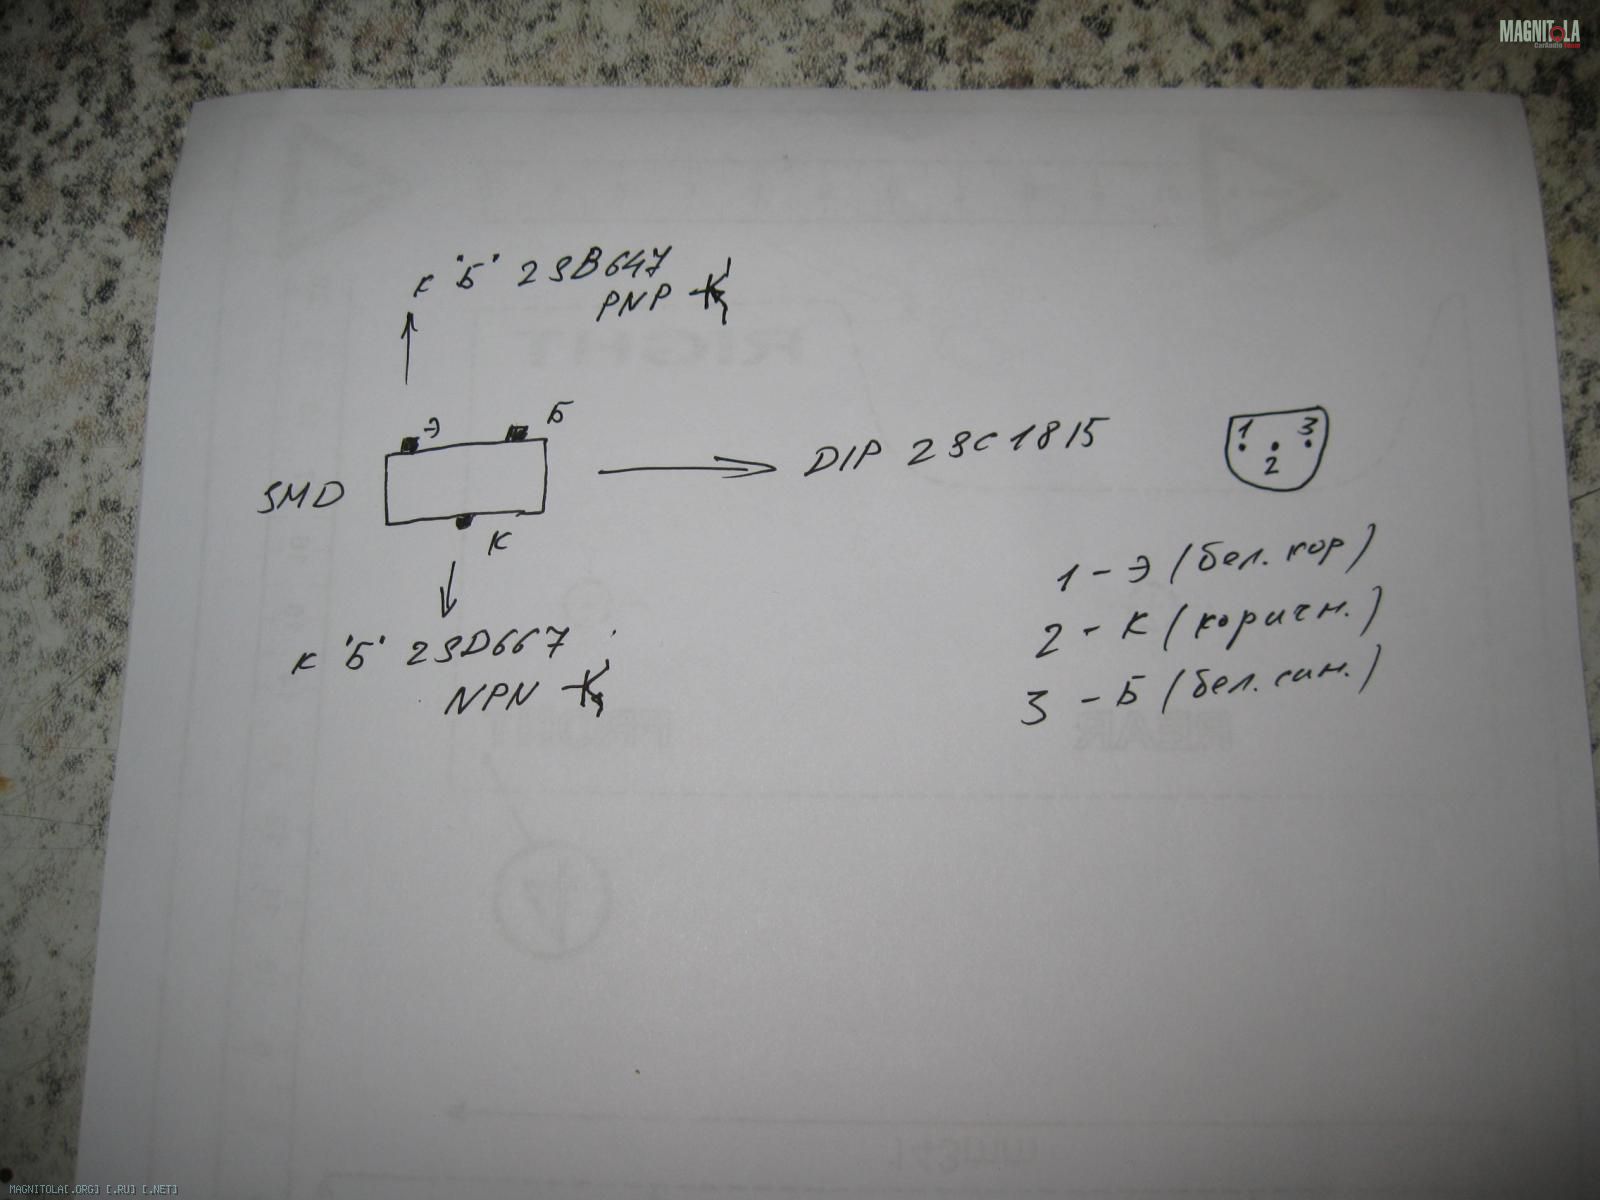 MAGNITOLA
CarAudio Forum
к "Б" 2SB647
PNP
Э
Б
SMD
К
DIP 2SC1815
1 3
2
к "Б" 2SD667
NPN
1 - Э (бел. кор)
2 - К (коричн.)
3 - Б (бел. син.)
RIGHT
FRONT
REAR
143mm
MAGNITOLA[.ORG] [.RU] [.NET]